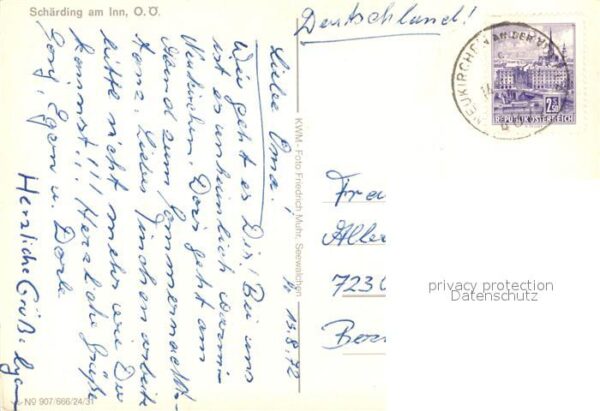 Schärding am Inn, O.Ö.
Deutschland!
NEUKIRCHEN AN DER
2.50
REPUBLIK ÖSTERREICH
13.8.72
Liebe Oma!
Wie geht es Dir! Bei uns
ist es unheimlich warm in
Neukirchen. Doris geht am
Abend zum Sommernachts-
Liebes
bitte nicht mehr wie Du
kannst!!! Herzliche Grüße
Egon u. Dorle
Herzliche Grüße
KWM-Foto Friedrich Muhr, Seewalchen
Fra
Aller
723
privacy protection
Datenschutz
No 907/666/24/31